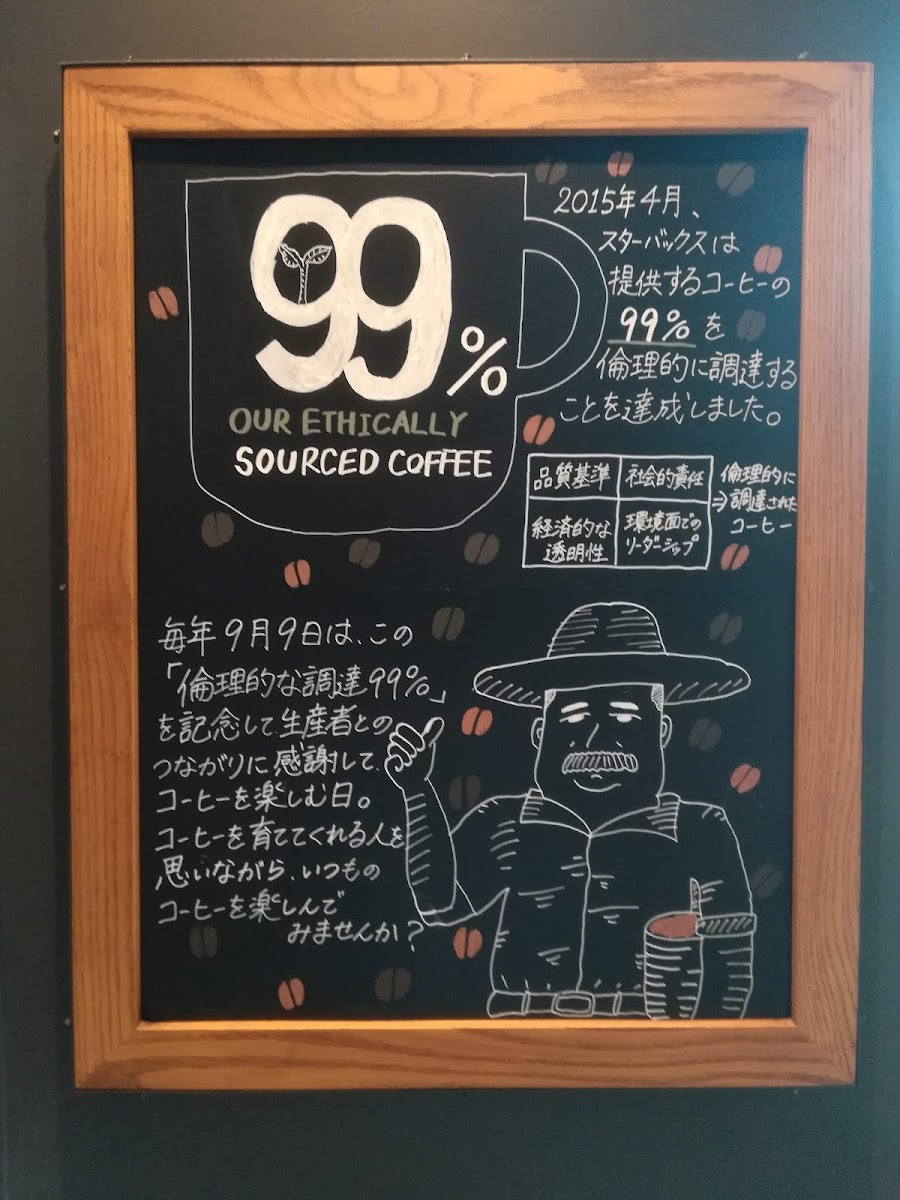 99%
OUR ETHICALLY
SOURCED COFFEE
2015年4月、
スターバックスは
提供するコーヒーの
99%を
倫理的に調達する
ことを達成しました。
品質基準
社会的責任
経済的な
透明性
環境面での
リーダーシップ
倫理的に
⇒調達された
コーヒー
毎年9月9日は、この
「倫理的な調達99%」
を記念して生産者との
つながりに感謝して、
コーヒーを楽しむ日。
コーヒーを育ててくれる人を
思いながら、いつもの
コーヒーを楽しんで
みませんか?